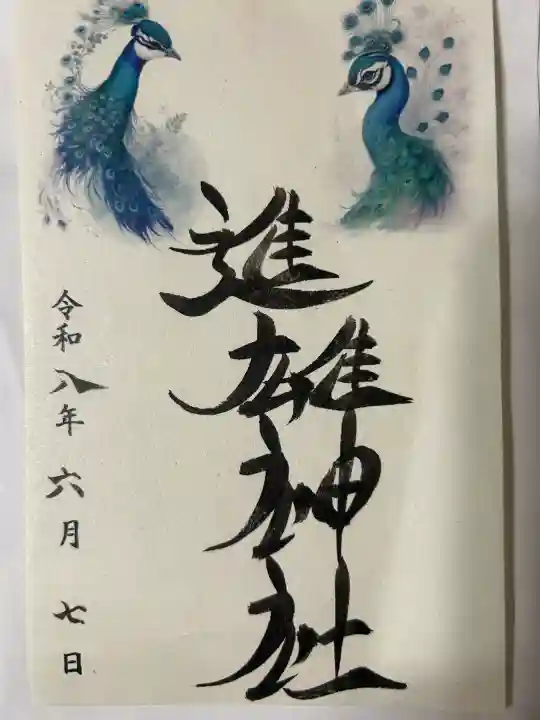 進雄神社
令和八年 六月 七日